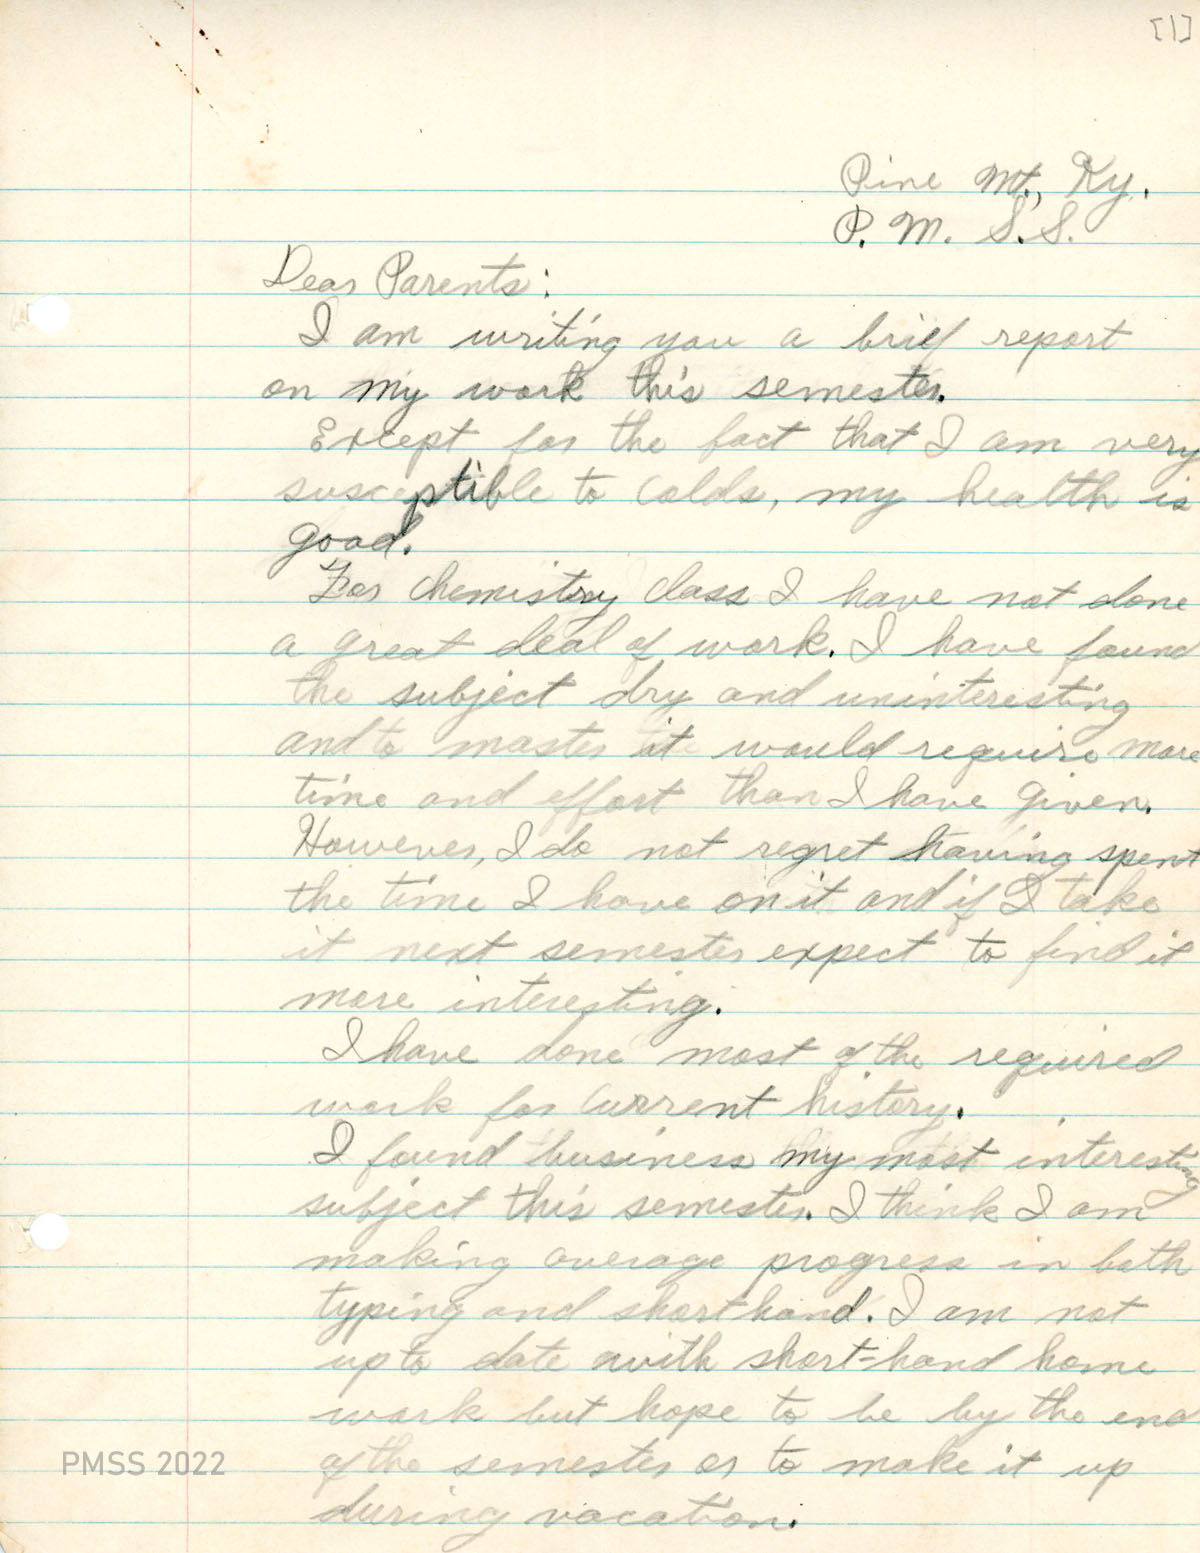 [1]
Pine Mt., Ky.
P. M. S. S.
Dear Parents:
I am writing you a brief report
on my work this semester.
Except for the fact that I am very
susceptible to colds, my health is
good.
For chemistry class I have not done
a great deal of work. I have found
the subject dry and uninteresting
and to master it would require more
time and effort than I have given.
However, I do not regret having spent
the time I have on it and if I take
it next semester expect to find it
more interesting.
I have done most of the required
work for current history.
I found business my most interesting
subject this semester. I think I am
making average progress in both
typing and shorthand. I am not
up to date with short-hand home
work but hope to be by the end
of the semester or to make it up
during vacation.
PMSS 2022